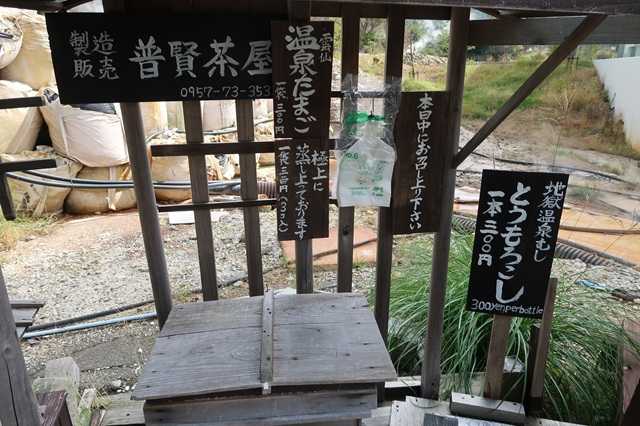 製造
販売
普賢茶屋
0957-73-353
雲仙
温泉たまご
一袋三〇〇円
極上に
蒸し上っております
一袋三〇〇円
本日中にお召し上り下さい
地獄温泉むし
とうもろこし
一本三〇〇円
300yen per bottle